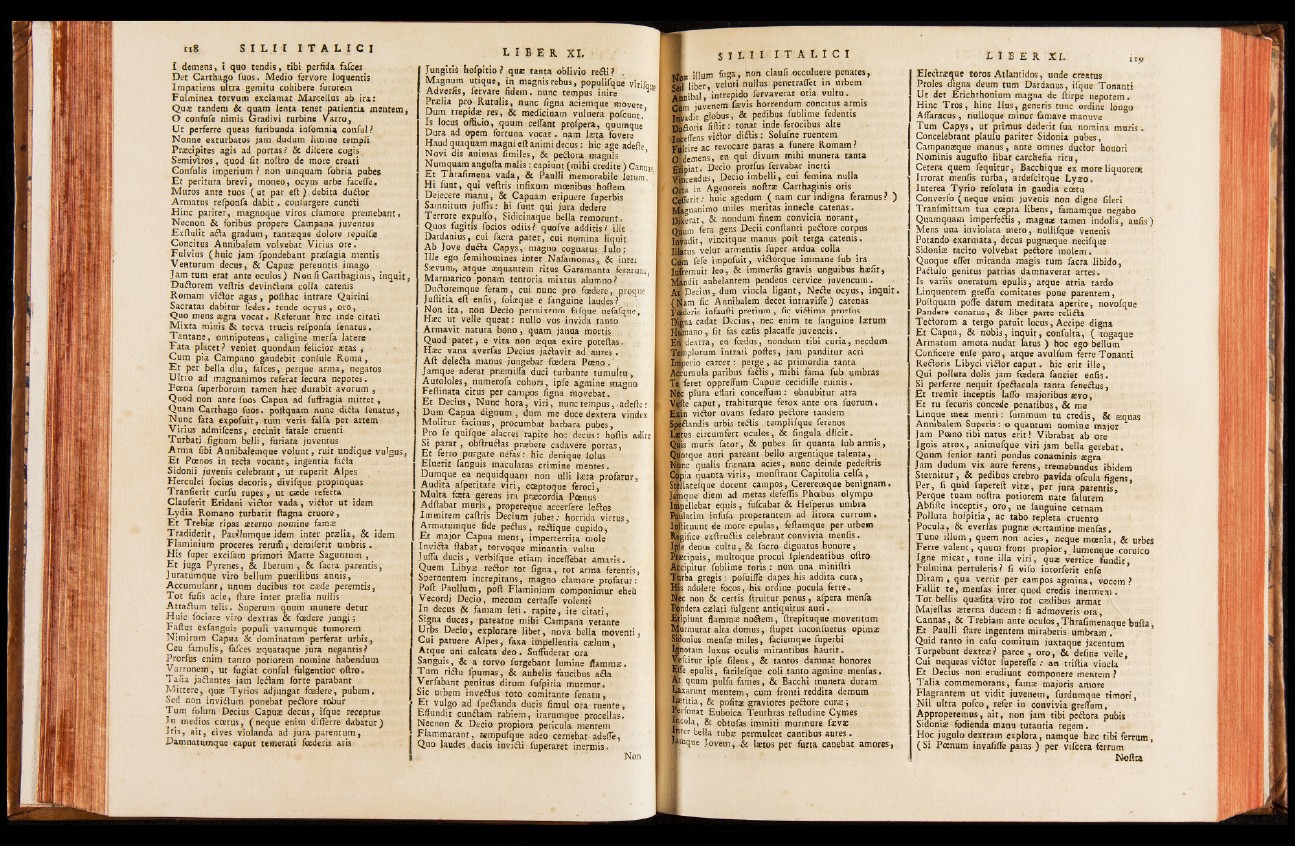 118 SILII ITALICI
I demens, i quo tendis, tibi perfida fasces
Det Carthago suos. Medio fervore loquentis
Impatiens ultra gemitu cohibere furorem
Fulminea torvum exclamat Marcellus ab ira:
Quæ tandem & quam lenta tenet patientia mentem,
O confuse nimis Gradivi turbine Varro,
Ut perferre queas furibunda insomnia consul?
Nonne exturbatos jam dudum limine templi
Præcipites agis ad portas? & discere cogis
Semiviros, quod sit nostro de more creati
Consulis imperium? non umquam sobria pubes
Et peritura brevi, moneo, ocyus urbe facesse.
Muros ante tuos (ut par est) debita ductor
Armatus responsa dabit. consurgere cuncti
Hinc pariter, magnoque viros clamore premebant.
Necnon & foribus propere Campana juventus
Exsiluit acta gradum, tantæque dolore repulsæ
Concitus Annibalem volvebat Virius ore.
Fulvius (huic jam spondebant præsagia mentis
Venturum decus, & Capuæ pereuntis imago
Jam tum erat ante oculos) Non si Carthaginis, inquit,
Ductorem vestris devinctum colla catenis
Romam victor agas, posthac intrare Quirini
Sacratas dabitur sedes. tende ocyus, oro,
Quo mens ægra vocat. Referunt hæc inde citati
Mixta minis & torva trucis responsa senatus.
Tantane, omnipotens, caligine mersa latere
Fata placet? veniet quondam felicior ætas,
Cum pia Campano gaudebit consule Roma,
Et per bella diu, fasces, perque arma, negatos
Ultro ad magnanimos referat secura nepotes.
Pœna superborum tamen hæc durabit avorum,
Quod non ante suos Capua ad suffragia mittet,
Quam Carthago suos. postquam nunc dicta senatus,
Nunc fata exposuit, tum veris falsa per artem
Virius admiscens, cecinit fatale cruenti
Turbati signum belli, furiata juventus
Arma sibi Annibalemque volunt, ruit undique vulgus,
Et Pœnos in tecta vocant, ingentia facta
Sidonii juvenis celebrant, ut ruperit Alpes
Herculei socius decoris, divisque propinquas
Transierit cursu rupes, ut cæde referta
Clauserit Eridani victor vada, victor ut idem
Lydia Romano turbarit stagna cruore,
Et Trebiæ ripas æterno nomine famæ
Tradiderit, Paullumque idem inter prælia, & idem
Flaminium proceres rerum, demiserit umbris.
His super excisam primori Marte Saguntum,
Et juga Pyrenes, & Iberum, & sacra parentis,
Juratumque viro bellum puerilibus annis,
Accumulant, unum ducibus tot cæde peremtis,
Tot fusis acie, stare inter prælia nullis
Attractum telis. Superum quum munere detur
Huic sociare viro dextras & fœdere jungi;
Fastus exsanguis populi vanumque tumorem
Nimirum Capua & dominatum perferat urbis,
Ceu famulis, fasces æquataque jura negantis?
Prorsus enim tanto potiorem nomine habendum
Varronem, ut fugiat consul fulgentior ostro.
Talia jactantes jam lectam sorte parabant
Mittere, quæ Tyrios adjungat fœdere, pubem.
Sed non invictum ponebat pectore robur
Tum solum Decius Capuæ decus, isque receptus
In medios cœtus, (neque enim differre dabatur)
Itis, ait, cives violanda ad jura parentum,
Damnatumque caput temerati fœderis aris
LIBER XI.
Jungitis hospitio? quæ tanta oblivio recti?
Magnum utique, in magnis rebus, populisque virisque
Adversis, servare fidem. nunc tempus inire
Prælia pro Rutulis, nunc signa aciemque movere,
Dum trepidæ res, & medicinam vulnera poscunt.
Is locus officio, quum cessant prospera, quumque
Dura ad opem fortuna vocat. nam læta fovere
Haud quaquam magni est animi decus: hic age adeste,
Novi dis animas similes, & pectora magnis
Numquam angusta malis: capiunt (mihi credite) Cannas,
Et Thrasimena vada, & Paulli memorabile letum.
Hi sunt, qui vestris infixum mœnibus hostem
Dejecere manu, & Capuam eripuere superbis
Samnitum jussis: hi sunt qui jura dedere
Terrore expulso, Sidicinaque bella remorunt.
Quos fugitis socios odiis? quosve additis? ille
Dardanius, cui sacra patet, cui nomina liquit
Ab Jove ducta Capys, magno cognatus Iulo;
Ille ego semihomines inter Nasamonas, & inter
Sævum, atque æquantem ritus Garamanta ferarum,
Marmarico ponam tentoria mixtus alumno?
Ductoremque feram, cui nunc pro fœdere, proque
Justitia est ensis, solæque e sanguine laudes?
Non ita, non Decio permixtum fasque nefasque,
Hæc ut velle queat: nullo vos invida tanto
Armavit natura bono, quam janua mortis
Quod patet, e vita non æqua exire potestas.
Hæc vana aversas Decius jactavit ad aures.
Ast delecta manus jungebat fœdera Pœno.
Jamque aderat præmissa duci turbante tumultu,
Autololes, numerosa cohors, ipse agmine magno
Festinata citus per campos signa movebat.
Et Decius, Nunc hora, viri, nunc tempus, adeste:
Dum Capua dignum, dum me duce dextera vindex
Molitur facinus, procumbat barbara pubes,
Pro se quisque alacres rapite hoc decus: hostis adire
Si parat, obstructas præbete cadavere portas,
Et ferro purgate nefas: hic denique solus
Eluerit sanguis maculatas crimine mentes.
Dumque ea nequidquam non ulli læta profatur,
Audita asperitate viri, cœptoque feroci,
Multa fœta gerens ira præcordia Pœnus
Adstabat muris, propereque accersere lectos
Immitem castris Decium jubet: horrida virtus,
Armatumque fide pectus, rectique cupido,
Et major Capua mens, imperterrita mole
Invicta stabat, torvoque minantis vultu
Jussa ducis, verbisque etiam incessebat amaris.
Quem Libyæ rector tot signa, tot arma ferentis,
Spernentem increpitans, magno clamore profatur:
Post Paullum, post Flaminium componimur eheu
Vecordi Decio, mecum certasse volenti
In decus & famam leti. rapite, ite citati,
Signa duces, pateatne mihi Campana vetante
Urbs Decio, explorare libet, nova bella moventi,
Cui patuere Alpes, saxa impellentia cælum,
Atque uni calcata deo. Suffuderat ora
Sanguis, & a torvo surgebant lumine flammæ.
Tum rictu spumas, & anhelis faucibus acta
Versabant penitus dirum suspiria murmur.
Sic urbem invectus toto comitante senatu,
Et vulgo ad spectanda ducis simul ora ruente,
Effundit cunctam rabiem, irarumque procellas.
Necnon & Decio propiora pericula mentem
Flammarant, tempusque adeo cernebat adesse,
Quo laudes ducis invicti superaret inermis.
Non
SILII ITALICI
Non illum fuga, non clausi occuluere penates,
Sed liber, veluti nullus penetrasset in urbem
Annibal, intrepido servaverat otia vultu.
Cum juvenem sævis horrendum concitus armis
Invadit globus, & pedibus sublime sedentis
Ductoris sistit: tonat inde ferocibus alte
Incessens victor dictis: Solusne ruentem
Fulcire ac revocare paras a funere Romam?
O demens, en qui divum mihi munera tanta
Eripiat. Decio prorsus servabar inerti
Vincendus, Decio imbelli, cui femina nulla
Orta in Agenoreis nostræ Carthaginis oris
Cesserit: huic agedum (nam cur indigna feramus?)
Magnanimo miles meritas innecte catenas.
Dixerat, & nondum finem convicia norant,
Quum fera gens Decii constanti pectore corpus
Invadit, vincitque manus post terga catenis.
Illatus velut armentis super ardua colla
Cum sese imposuit, victorque immane sub ira
Infremuit leo, & immersis gravis unguibus hæsit,
Mandit anhelantem pendens cervice juvencum.
At Decius, dum vincla ligant, Necte ocyus, inquit.
(Nam sic Annibalem decet intravisse) catenas
Fœderis infausti pretium, sic victima prorsus
Digna cadat Decius, nec enim te sanguine lætum
Humano, sit fas cæsis placasse juvencis.
En dextra, en fœdus, nondum tibi curia, necdum
Templorum intrati postes, jam panditur acri
Imperio carcer: perge, ac primordia tanta
Accumula paribus factis, mihi fama sub umbras
Te feret oppressum Capuæ cecidisse ruinis.
Nec plura effari concessum: obnubitur atra
Veste caput, trahiturque ferox ante ora suorum.
Exin victor ovans sedato pectore tandem
Spectandis urbis tectis templisque serenos
Lætus circumfert oculos, & singula discit.
Quis muris sator, & pubes sit quanta sub armis,
Quotque auri pateant bello argentique talenta,
Nunc qualis frænata acies, nunc deinde pedestris
Copia quanta viris, monstrant Capitolia celsa,
Stellatesque docent campos, Cereremque benignam.
Jamque diem ad metas defessis Phœbus olympo
Impellebat equis, fuscabat & Hesperus umbra
Paulatim infusa properantem ad litora currum.
Instituunt de more epulas, festamque per urbem
Regifice exstructis celebrant convivia mensis.
Ipse denum cultu, & sacro dignatus honore,
Præcipuis, multoque procul splendentibus ostro
Accipitur sublime toris: non una ministri
Turba gregis: posuisse dapes his addita cura,
His adolere focos, his ordine pocula ferre.
Nec non & certis struitur penus, aspera mensa
Pondera cælati fulgent antiquitus auri.
Eripiunt flammæ noctem, strepituque moventum
Murmurat alta domus, stupet inconsuetus opimæ
Sidonius mensæ miles, faciemque superbi
Ignotam luxus oculis mirantibus haurit.
Vescitur ipse silens, & tantos damnat honores
Esse epulis, facilesque coli tanto agmine mensas.
At quum pulsa fames, & Bacchi munera duram
Laxarunt mentem, cum fronti reddita demum
Lætitia, & positæ graviores pectore curæ;
Personat Euboica Teuthras testudine Cymes
Incola, & obtusas immiti murmure sævæ
Inter bella tubæ permulcet cantibus aures.
Jamque Jovem, & lætos per furta canebat amores,
LIBER XI. 119
Electræque toros Atlantidos, unde creatus
Proles digna deum tum Dardanus, isque Tonanti
Ut det Erichthonium magna de stirpe nepotem.
Hinc Tros, hinc Ilus, generis tunc ordine longo
Assaracus, nulloque minor famave manuve
Tum Capys, ut primus dederit sua nomina muris.
Concelebrant plausu pariter Sidonia pubes,
Campanæque manus, ante omnes ductor honori
Nominis augusto libat carchesia ritu,
Cetera quem sequitur, Bacchique ex more liquorem
Irrorat mensis turba, ardescitque Lyæo.
Interea Tyrio resoluta in gaudia cœtu
Converso (neque enim juvenis non digne sileri
Transmittam tua cœpta libens, famamque negabo
Quamquam imperfectis, magnæ tamen indolis, ausis)
Mens una inviolata mero, nullisque venenis
Potando exarmata, decus pugnæque necisque
Sidoniæ tacito volvebat pectore molem.
Quoque esset miranda magis tum sacra libido,
Pactulo genitus patrias damnaverat artes.
Is variis oneratum epulis, atque atria tardo
Linquentem gressu comitatus pone parentem,
Postquam posse datum meditata aperire, novosque
Pandere conatus, & liber parte relicta
Tectorum a tergo patuit locus, Accipe digna
Et Capua, & nobis, inquit, consulta, (togaque
Armatum amota nudat latus) hoc ego bellum
Conficere ense paro, atque avulsum ferre Tonanti
Rectoris Libyci victor caput. hic erit ille,
Qui polluta dolis jam fœdera sanciet ensis.
Si perferre nequit spectacula tanta senectus,
Et tremit inceptis lasso majoribus ævo,
Et tu securis concede penatibus, & me
Linque meæ menti: summum tu credis, & æquas
Annibalem Superis: o quantum nomine major
Jam Pœno tibi natus erit! Vibrabat ab ore
Ignis atrox, animusque viri jam bella gerebat.
Quum senior tanti pondus conaminis ægra
Jam dudum vix aure ferens, tremebundus ibidem
Sternitur, & pedibus crebro pavida oscula figens,
Per, si quid superest vitæ, per jura parentis,
Perque tuam nostra potiorem nate salutem
Absiste inceptis, oro, ne sanguine cernam
Pollura hospitia, ac tabo repleta cruento
Pocula, & eversas pugnæ certamine mensas.
Tune illum, quem non acies, neque mœnia, & urbes
Ferre valent, quum frons propior, lumenque corusco
Igne micat, tune illa viri, quæ vertice fundit,
Fulmina pertuleris? si viso intorserit ense
Diram, qua vertit per campos agmina, vocem?
Fallit te, mensas inter quod credis inermem.
Tot bellis quæsita viro tot cædibus armat
Majestas æterna ducem: si admoveris ora,
Cannas, & Trebiam ante oculos, Thrasimenaque busta,
Et Paulli stare ingentem miraberis umbram.
Quid tanto in casu comitum juxtaque jacentum
Torpebunt dextræ? parce, oro, & desine velle,
Cui nequeas victor superesse: an tristia vincla
Et Decius non erudiunt componere mentem?
Talia commemorans, famæ majoris amore
Flagrantem ut vidit juvenem, surdumque timori,
Nil ultra posco, refer in convivia gressum,
Approperemus, ait, non jam tibi pectora pubis
Sidoniæ fodienda manu tutantia regem.
Hoc jugulo dextram explora, namque hæc tibi ferrum,
(Si Pœnum invasisse paras) per viscera ferrum
Nostra